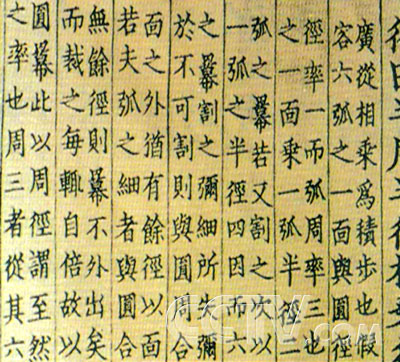 廣從相乘爲積步也假
容六弧之一面與圓徑
徑率一而弧周率三也
之一面乘一弧半徑二
弧之冪若又割之次以
一弧之半徑四因而六
之冪割之彌細所失彌
於不可割則與圓周合
面之外猶有餘徑以面
若夫弧之細者與圓合
無餘徑則冪不外出矣
而裁之每輒自倍故以
圓冪此以周徑謂至然
之率也周三者從其六
CCTV.com